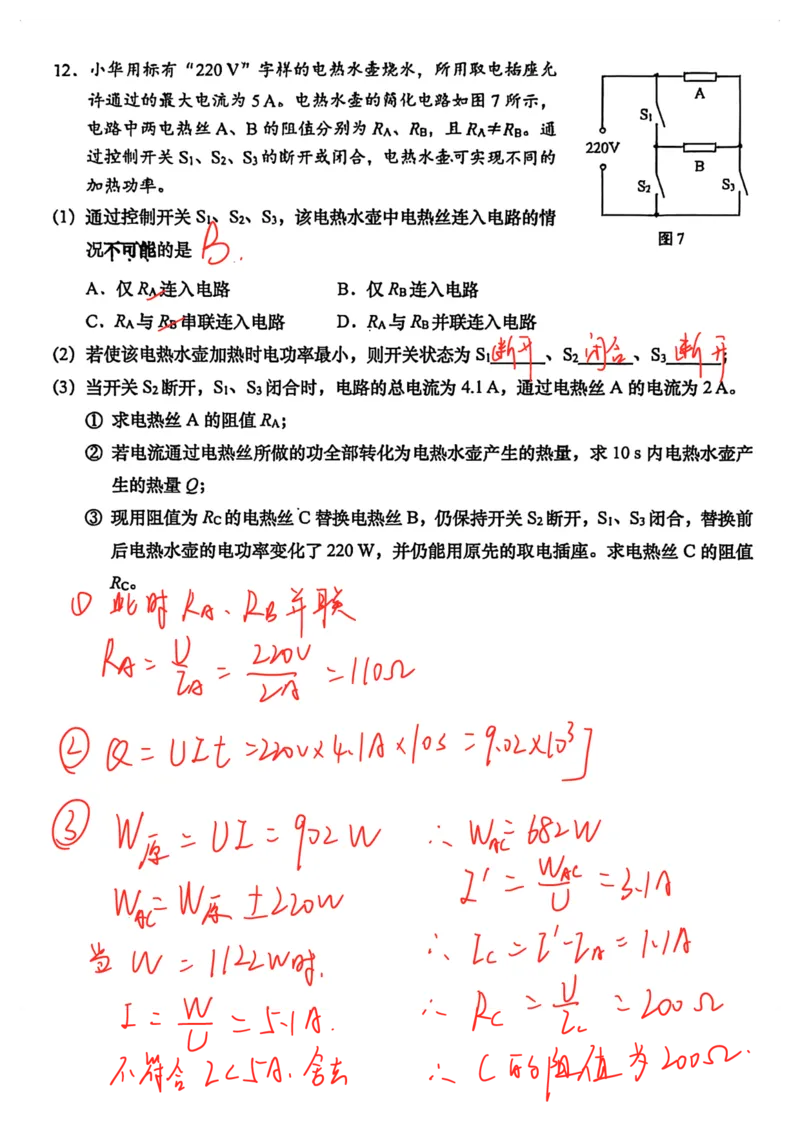 12. 小华用标有“220 V”字样的电热水壶烧水，所用取电插座允
许通过的最大电流为 5 A。电热水壶的简化电路如图 7 所示，
电路中两电热丝 A、B 的阻值分别为 RA、RB，且 RA≠RB。通
过控制开关 S1、S2、S3 的断开或闭合，电热水壶可实现不同的
加热功率。
220V
A
B
S1
S2
S3
图 7
(1) 通过控制开关 S1、S2、S3，该电热水壶中电热丝连入电路的情
况不可能的是 B.
A. 仅 RA 连入电路 B. 仅 RB 连入电路
C. RA 与 RB 串联连入电路 D. RA 与 RB 并联连入电路
(2) 若使该电热水壶加热时电功率最小，则开关状态为 S1 断开、S2 闭合、S3 断开；
(3) 当开关 S2 断开，S1、S3 闭合时，电路的总电流为 4.1 A，通过电热丝 A 的电流为 2 A。
① 求电热丝 A 的阻值 RA；
② 若电流通过电热丝所做的功全部转化为电热水壶产生的热量，求 10 s 内电热水壶产
生的热量 Q；
③ 现用阻值为 RC 的电热丝 C 替换电热丝 B，仍保持开关 S2 断开，S1、S3 闭合，替换前
后电热水壶的电功率变化了 220 W，并仍能用原先的取电插座。求电热丝 C 的阻值
RC。
① 此时 RA、RB 并联
RA = U/IA = 220V/2A = 110Ω
② Q = UIt = 220V×4.1A×10s = 9.02×10³J
③ W原 = UI = 902W
WAC = W原 ± 220W
当 W = 1122W时,
I = W/U = 5.1A.
不符合 I<5A. 舍去
∴ WAC = 682W
I' = WAC/U = 3.1A
∴ Ic = I'-IA = 1.1A
∴ Rc = U/Ic = 200Ω
∴ C的阻值为200Ω.